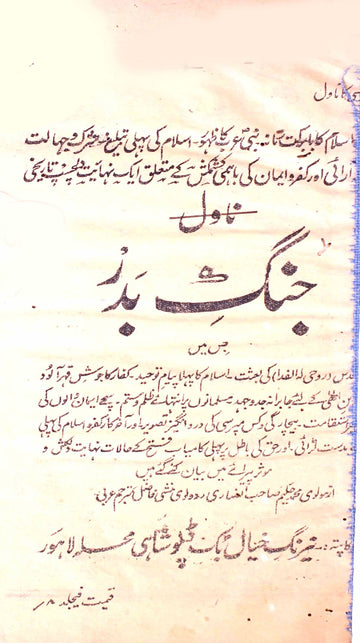 کا ناول
اسلام کا بابرکت زمانہ نبی عرب کا ظہور۔ اسلام کی پہلی تبلیغ شرک و جہالت
آرائی اور کفر و ایمان کی باہمی کشمکش کے متعلق ایک نہایت دلچسپ تاریخی
ناول
جنگِ بدر
جس میں
(روحی لہ الفدا) کی بعثت۔ اسلام کا پہلا پیام توحید۔ کفار کا جوش قہر آلود
کے لئے جابرانہ جدوجہد۔ مسلمانوں پر انتہائے ظلم و ستم۔ سچے ایمان داروں کی
استقامت۔ بیچارگی و کس مپرسی کی درد انگیز تصویر اور آخر کار کفر و اسلام کی پہلی
لڑائی۔ اور حق کی باطل پر پہلی کامیاب فتح کے حالات نہایت دلکش و
موثر پیرائے میں بیان کئے گئے ہیں
از مولوی محمد حکیم صاحب انصاری ردولوی منشی فاضل مترجم عربی
کا پتہ:۔ نیرنگ خیال بک ڈپو شاہی محلہ لاہور
قیمت فیجلد ۸/